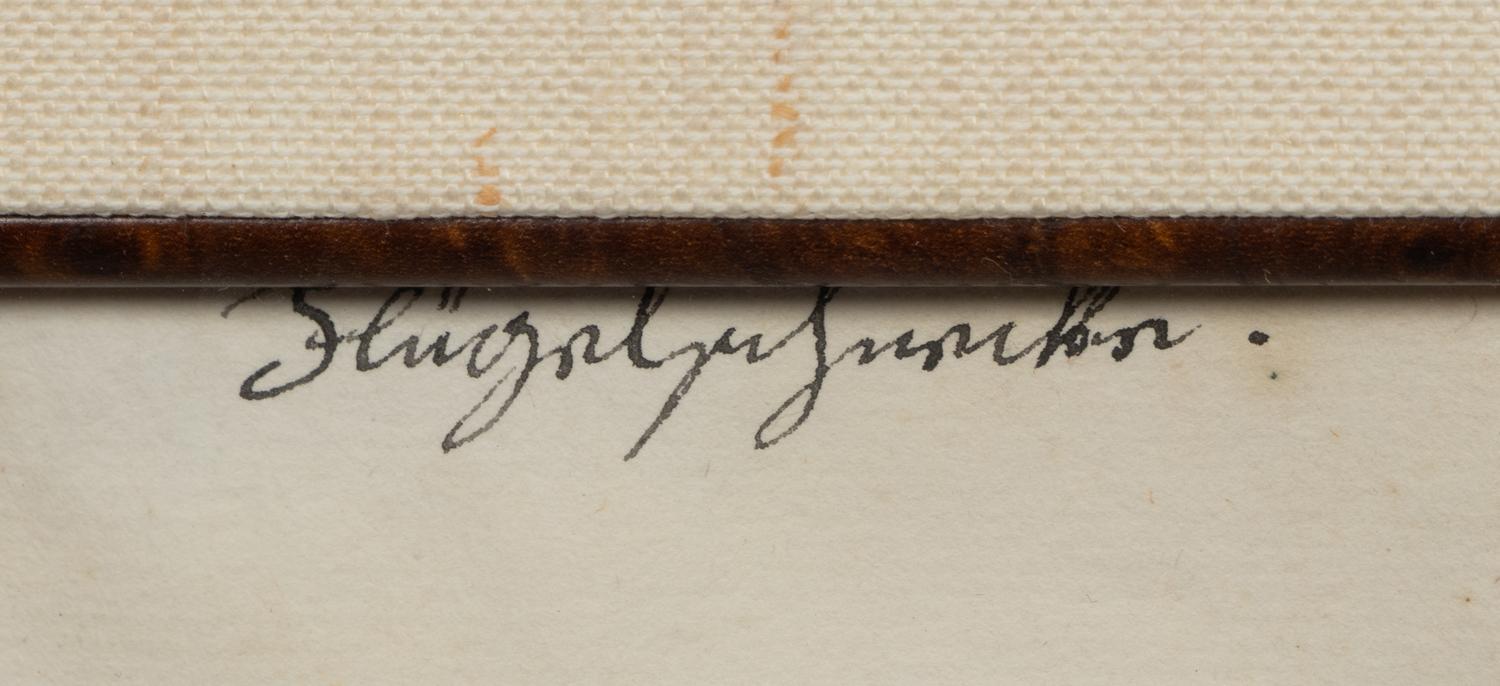 Flügelschnecke.